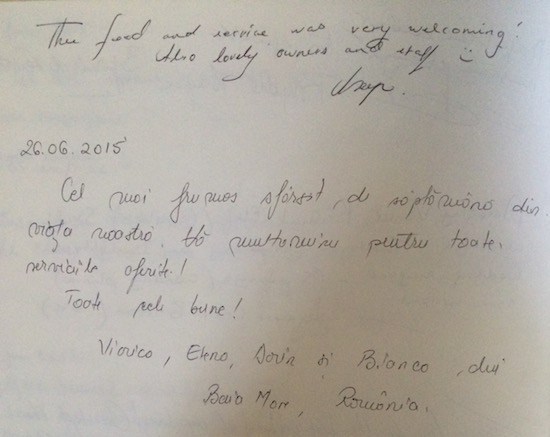 The food and service was very welcoming!
Also lovely owners and staff :)
26.06.2015
Cel mai frumos sfârșit de săptămână din
viața noastră. Vă mulțumim pentru toate
serviciile oferite!
Toate cele bune!
Viorica, Elena, Dorin și Bianca, din
Baia Mare, România.